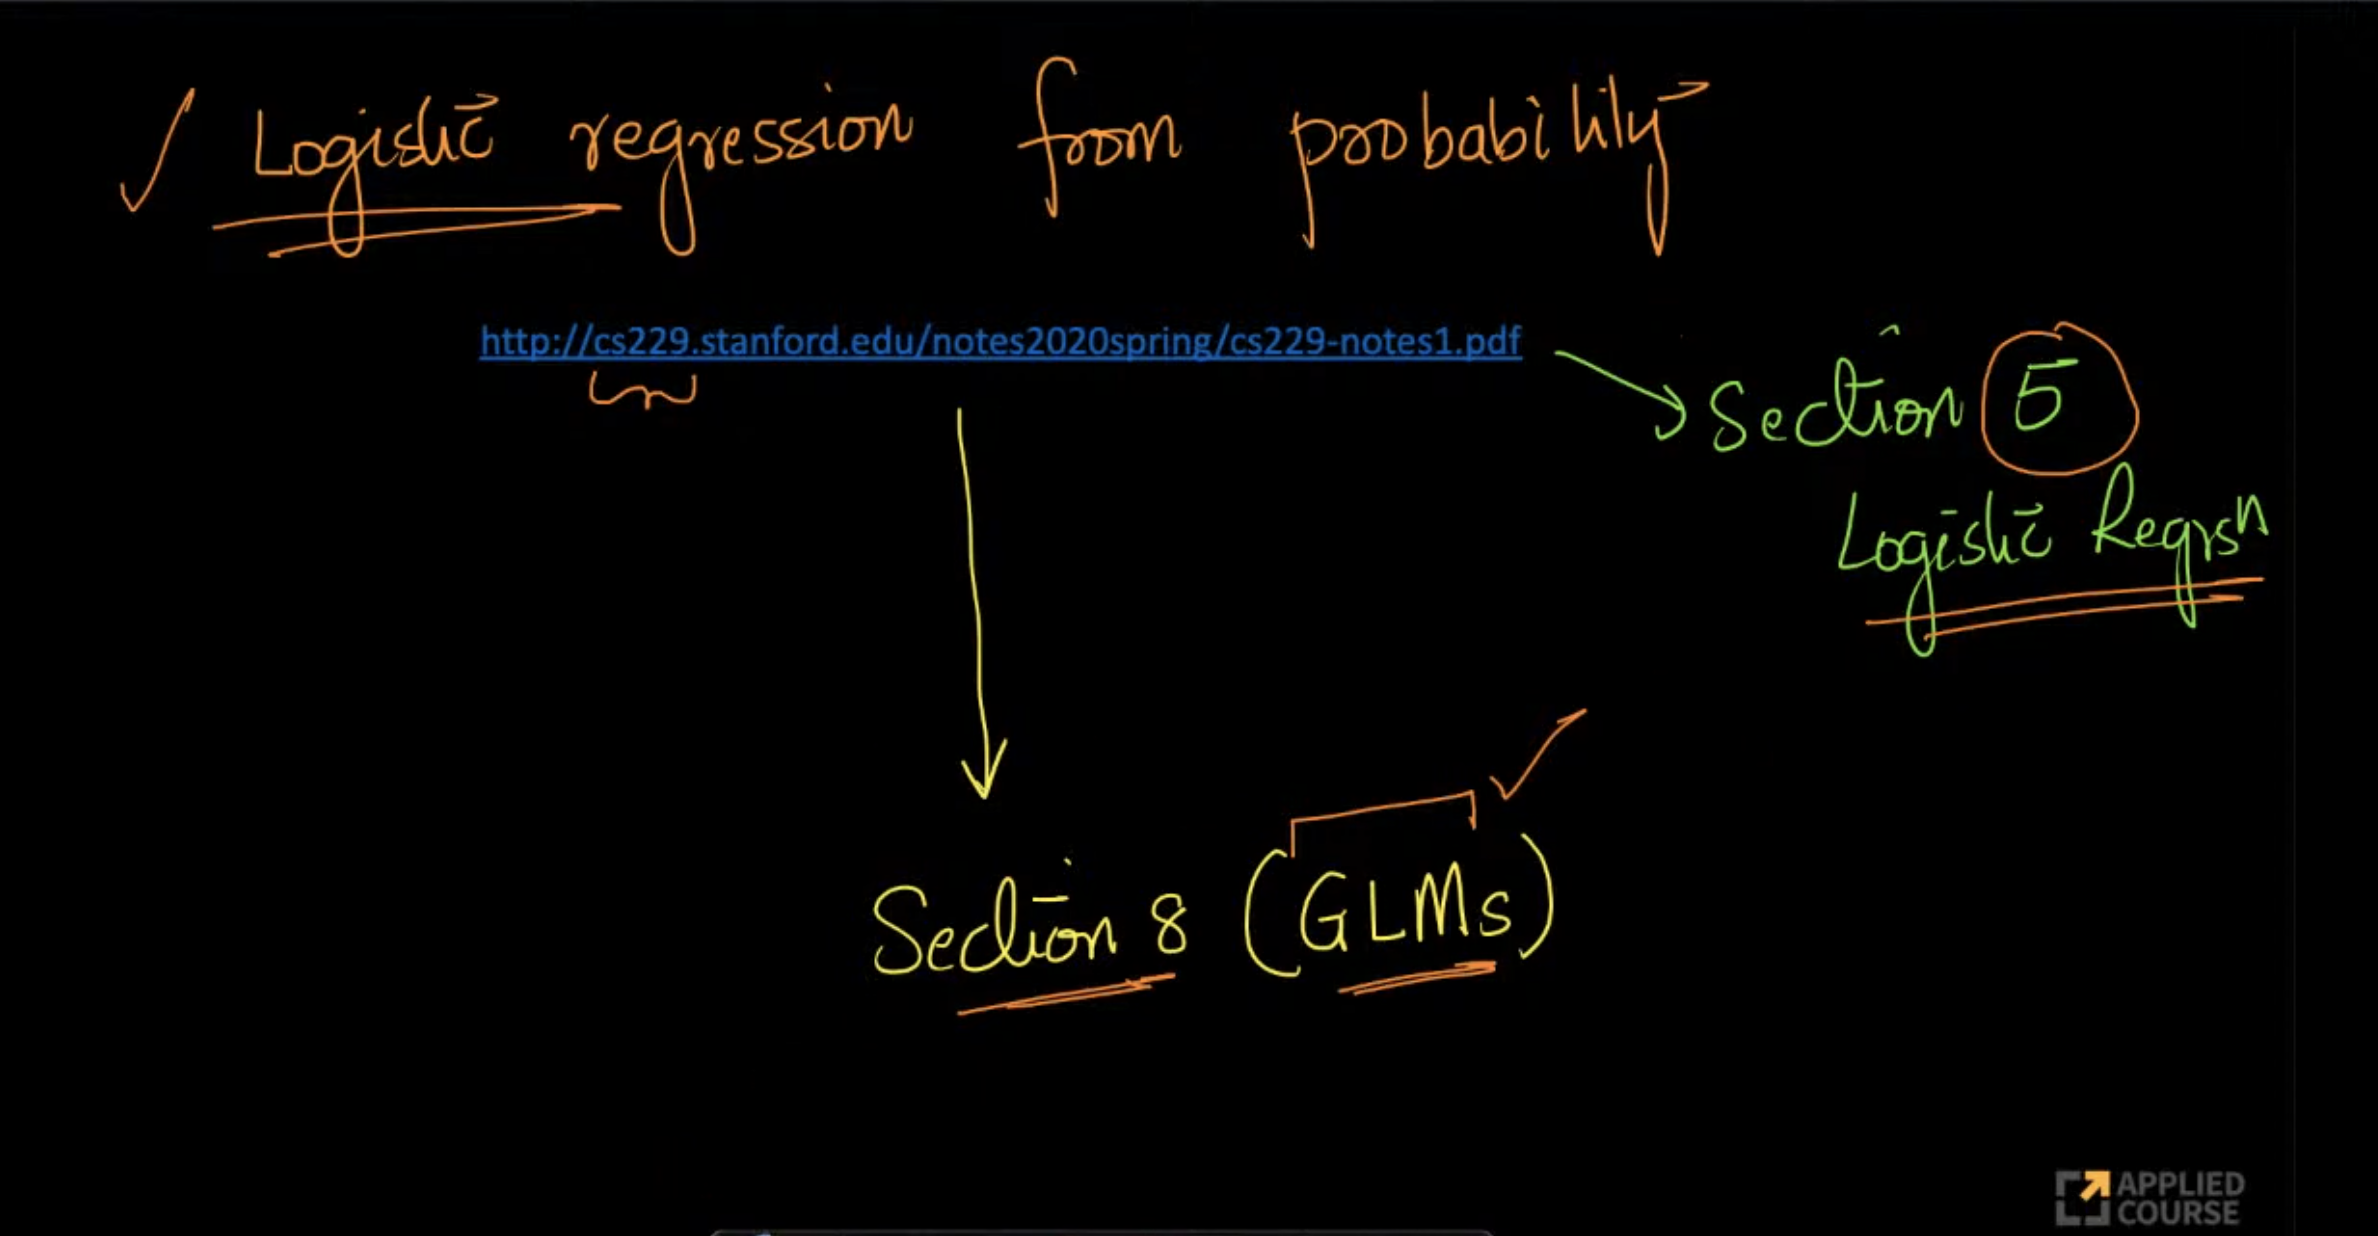 Logistic regression from probability
http://cs229.stanford.edu/notes2020spring/cs229-notes1.pdf
Section 5
Logistic Regrsn
Section 8 (GLMs)
APPLIED
COURSE